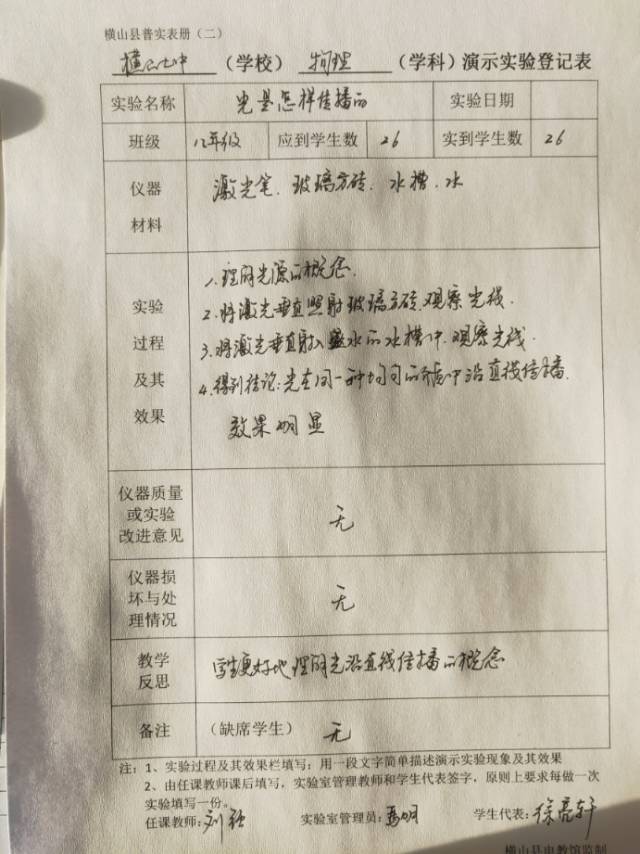 横山县普实表册（二）
横山七中（学校）物理（学科）演示实验登记表
实验名称 光是怎样传播的 实验日期
班级 八年级 应到学生数 26 实到学生数 26
仪器 激光笔、玻璃方砖、水槽、水
材料
1.理明光源的概念.
实验 2.将激光垂直照射玻璃方砖,观察光线.
过程 3.将激光垂直射入盛水的水槽中,观察光线.
及其 4.得到结论:光在同一种均匀的介质中沿直线传播.
效果 效果明显
仪器质量
或实验 无
改进意见
仪器损
坏与处 无
理情况
教学 学生更好地理明光沿直线传播的概念
反思
备注 （缺席学生） 无
注：1、实验过程及其效果栏填写：用一段文字简单描述演示实验现象及其效果
2、由任课教师课后填写，实验室管理教师和学生代表签字，原则上要求每做一次
实验填写一份。
任课教师:刘 实验室管理员: 学生代表:徐亮轩
横山县电教馆监制